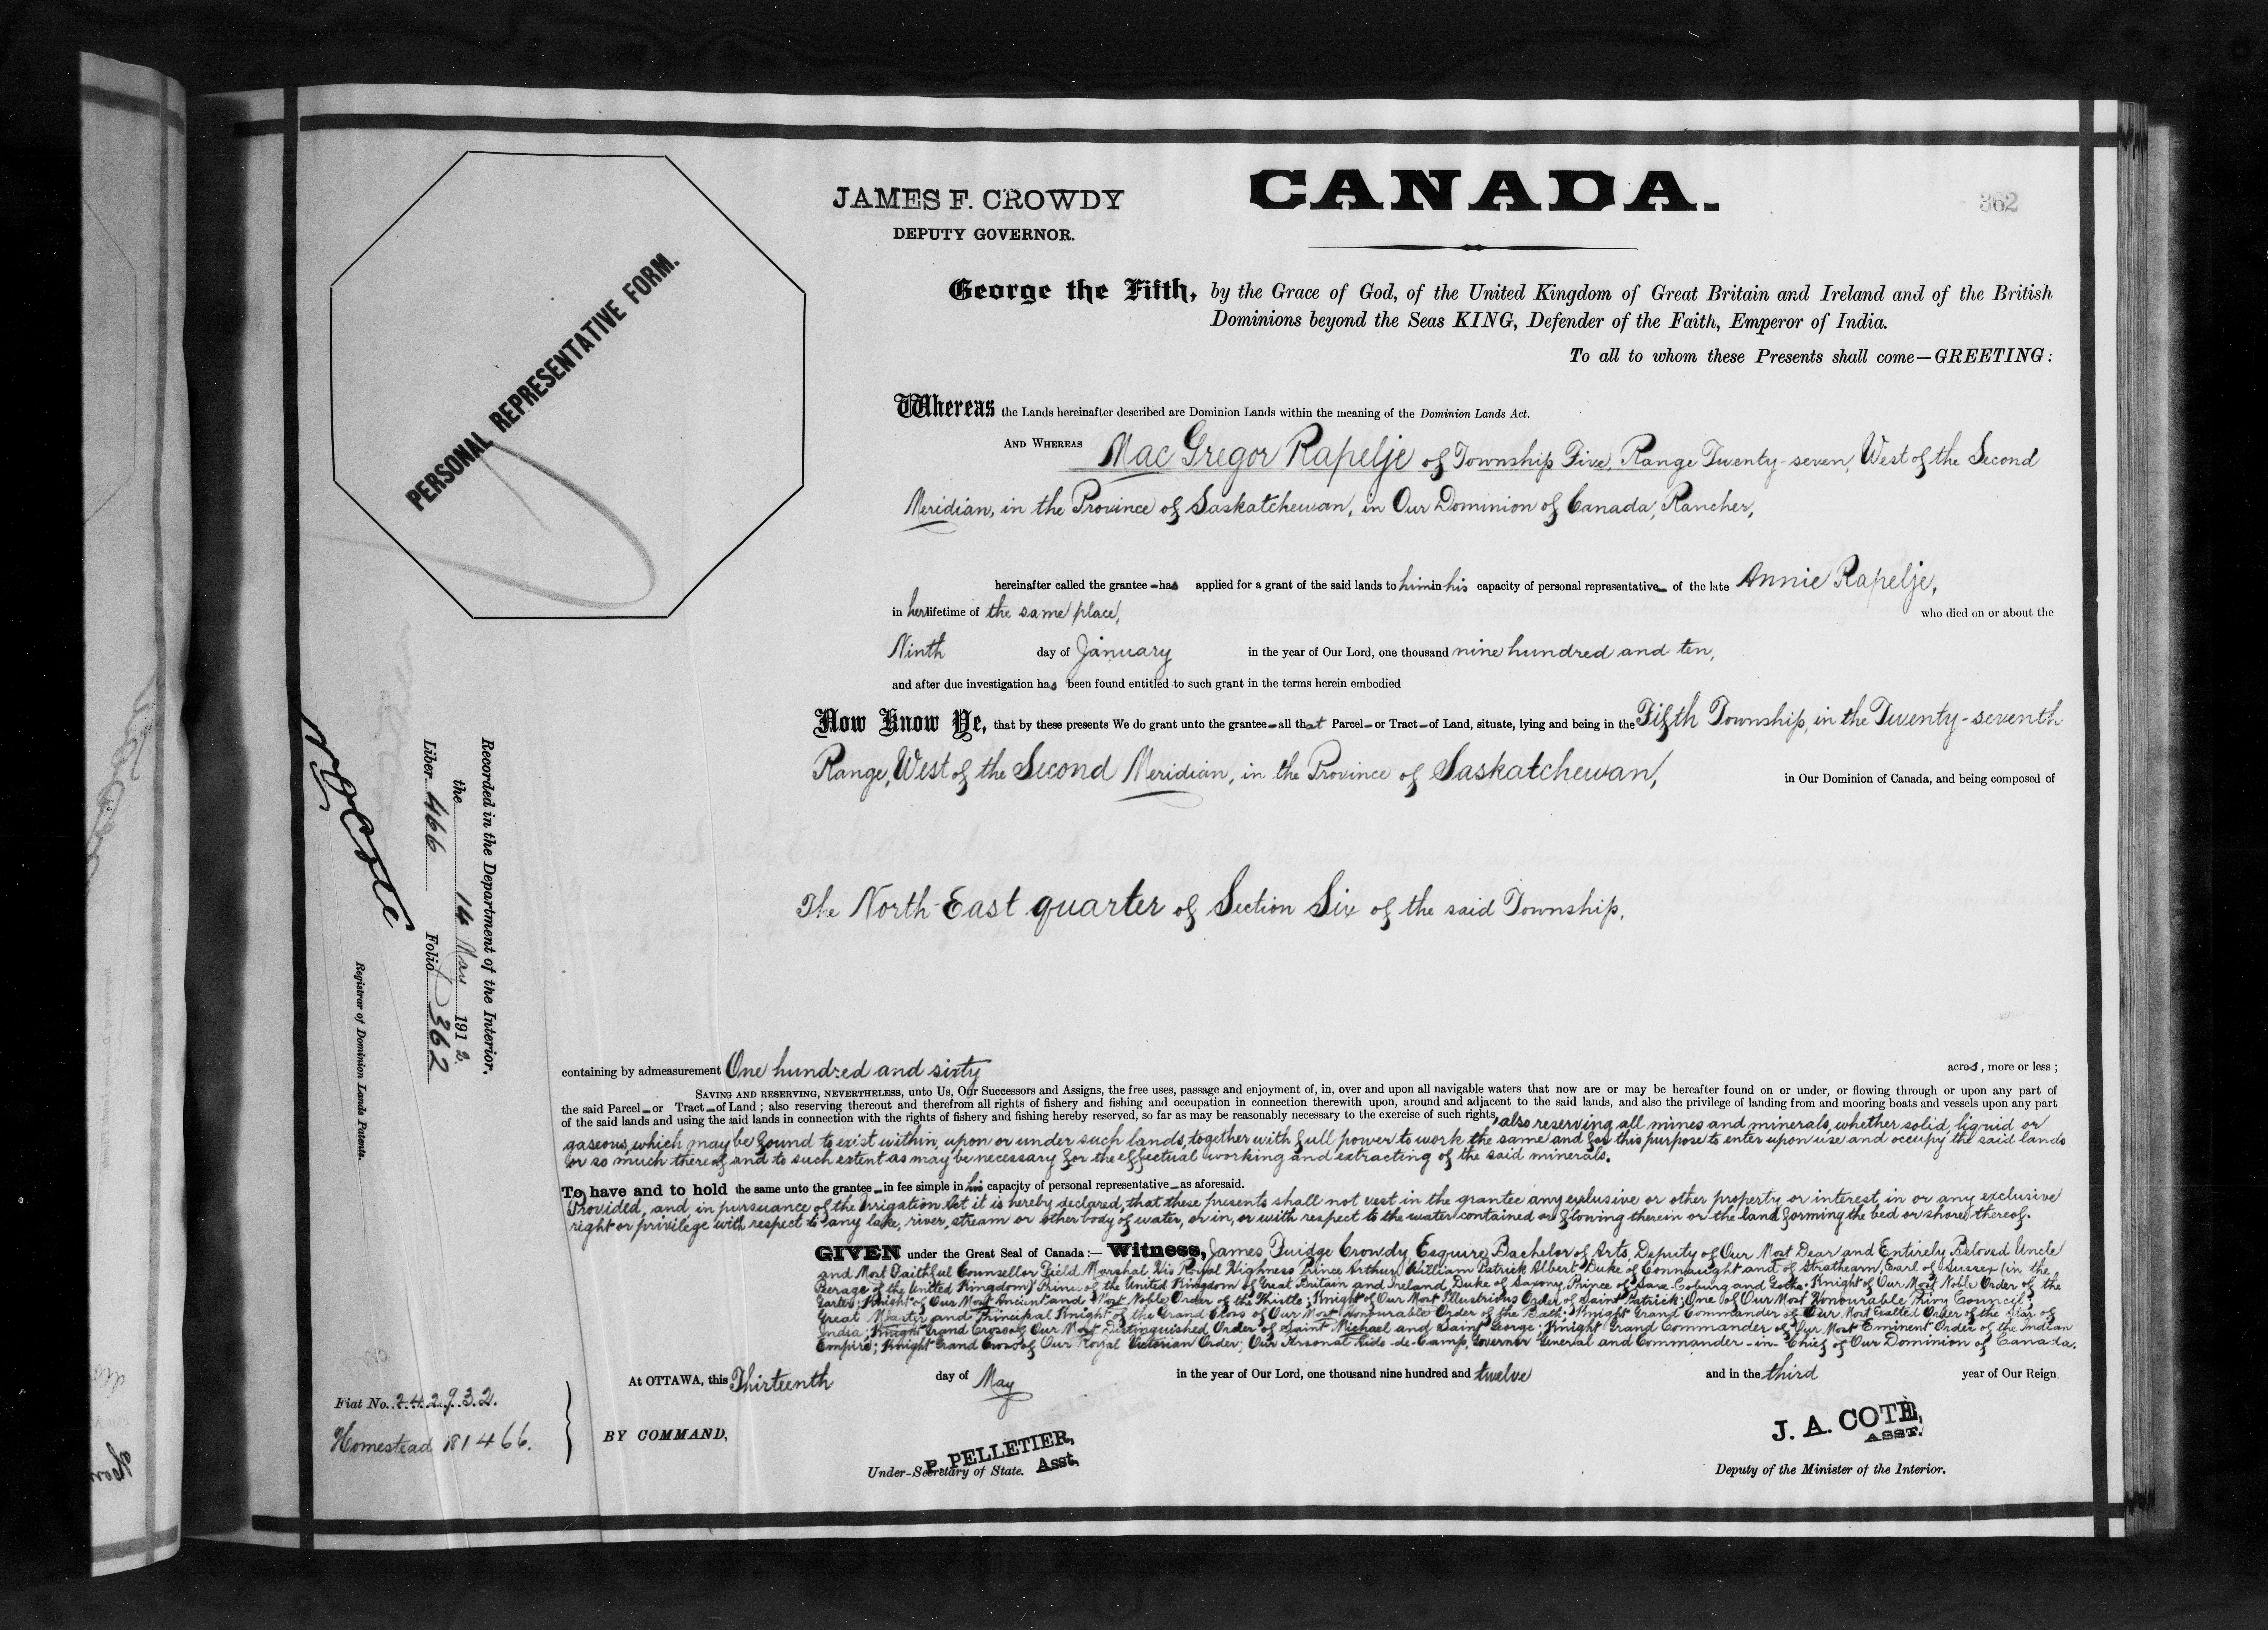 JAMES F. CROWDY
DEPUTY GOVERNOR.
CANADA.
362
PERSONAL REPRESENTATIVE FORM.
George the Fifth, by the Grace of God, of the United Kingdom of Great Britain and Ireland and of the British
Dominions beyond the Seas KING, Defender of the Faith, Emperor of India.
To all to whom these Presents shall come—GREETING:
Whereas the Lands hereinafter described are Dominion Lands within the meaning of the Dominion Lands Act.
AND WHEREAS Mac Gregor Rapelje of Township Five, Range Twenty-seven, West of the Second
Meridian, in the Province of Saskatchewan, in Our Dominion of Canada, Rancher,
hereinafter called the grantee has applied for a grant of the said lands to him in his capacity of personal representative of the late Annie Rapelje,
in her lifetime of the same place, who died on or about the
Ninth day of January in the year of Our Lord, one thousand nine hundred and ten,
and after due investigation has been found entitled to such grant in the terms herein embodied
Now Know Ye, that by these presents We do grant unto the grantee all that Parcel or Tract of Land, situate, lying and being in the Fifth Township, in the Twenty-seventh
Range, West of the Second Meridian, in the Province of Saskatchewan, in Our Dominion of Canada, and being composed of
The North East quarter of Section Six of the said Township,
containing by admeasurement One hundred and sixty acres, more or less;
SAVING AND RESERVING, NEVERTHELESS, unto Us, Our Successors and Assigns, the free uses, passage and enjoyment of, in, over and upon all navigable waters that now are or may be hereafter found on or under, or flowing through or upon any part of
the said Parcel or Tract of Land; also reserving thereout and therefrom all rights of fishery and fishing and occupation in connection therewith upon, around and adjacent to the said lands, and also the privilege of landing from and mooring boats and vessels upon any part
of the said lands and using the said lands in connection with the rights of fishery and fishing hereby reserved, so far as may be reasonably necessary to the exercise of such rights, also reserving all mines and minerals, whether solid, liquid or
gaseous, which may be found to exist within, upon or under such lands, together with full power to work the same and for this purpose to enter upon use and occupy the said lands
or so much thereof and to such extent as may be necessary for the effectual working and extracting of the said minerals.
To have and to hold the same unto the grantee in fee simple in his capacity of personal representative as aforesaid.
Provided, and in pursuance of the Irrigation Act it is hereby declared, that these presents shall not vest in the grantee any exclusive or other property or interest in or any exclusive
right or privilege with respect to any lake, river, stream or other body of water, or in, or with respect to the water contained or flowing therein or the land forming the bed or shore thereof.
GIVEN under the Great Seal of Canada:— Witness, James Fuidge Crowdy, Esquire, Bachelor of Arts, Deputy of Our Most Dear and Entirely Beloved Uncle
and Most Faithful Counsellor Field Marshal His Royal Highness Prince Arthur William Patrick Albert Duke of Connaught and of Strathearn, Earl of Sussex (in the
Peerage of the United Kingdom) Prince of the United Kingdom of Great Britain and Ireland, Duke of Saxony, Prince of Saxe Coburg and Gotha; Knight of Our Most Noble Order of the
Garter; Knight of Our Most Ancient and Most Noble Order of the Thistle; Knight of Our Most Illustrious Order of Saint Patrick; One of Our Most Honourable Privy Council;
Great Master and Principal Knight of the Grand Cross of Our Most Honourable Order of the Bath; Knight Grand Commander of Our Most Exalted Order of the Star of
India; Knight Grand Cross of Our Most Distinguished Order of Saint Michael and Saint George; Knight Grand Commander of Our Most Eminent Order of the Indian
Empire; Knight Grand Cross of Our Royal Victorian Order; Our Personal Aide-de-Camp, Governor General and Commander-in-Chief of Our Dominion of Canada.
At OTTAWA, this Thirteenth day of May in the year of Our Lord, one thousand nine hundred and twelve and in the third year of Our Reign.
BY COMMAND,
P. PELLETIER,
Asst.
Under-Secretary of State.
J. A. COTÈ,
ASST.
Deputy of the Minister of the Interior.
Recorded in the Department of the Interior,
the 14 May 1912.
Liber 466 Folio 362
Registrar of Dominion Lands Patents.
Fiat No. 242932.
Homestead 181466.